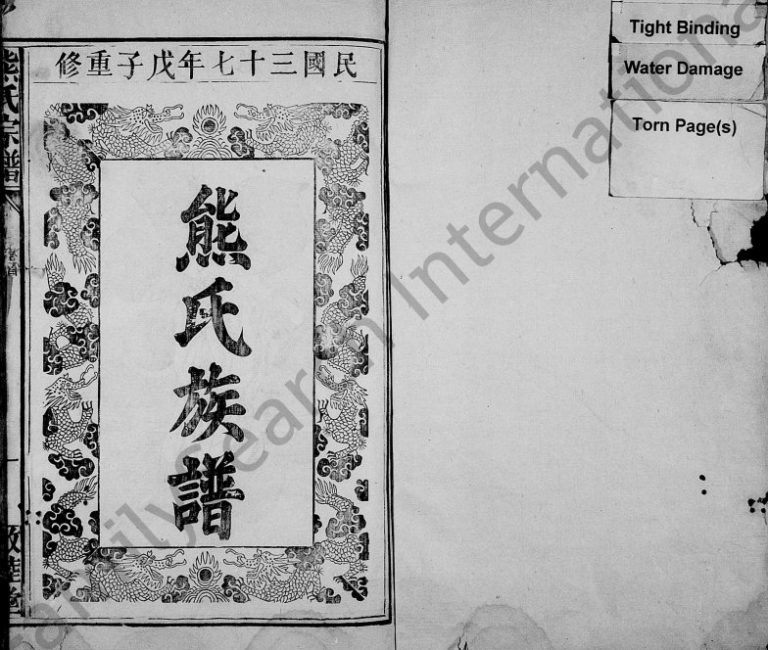 民國三十七年戊子重修
熊氏族譜
熊氏宗譜
Tight Binding
Water Damage
Torn Page(s)
FamilySearch International